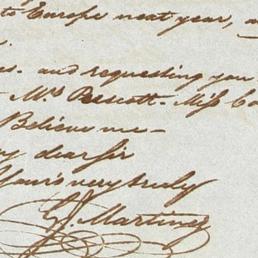 to Europe next year, a
s. and requesting you
Mrs Prescott. Miss Co
Believe me—
my dear Sir
Yours very truly
E. Martinez